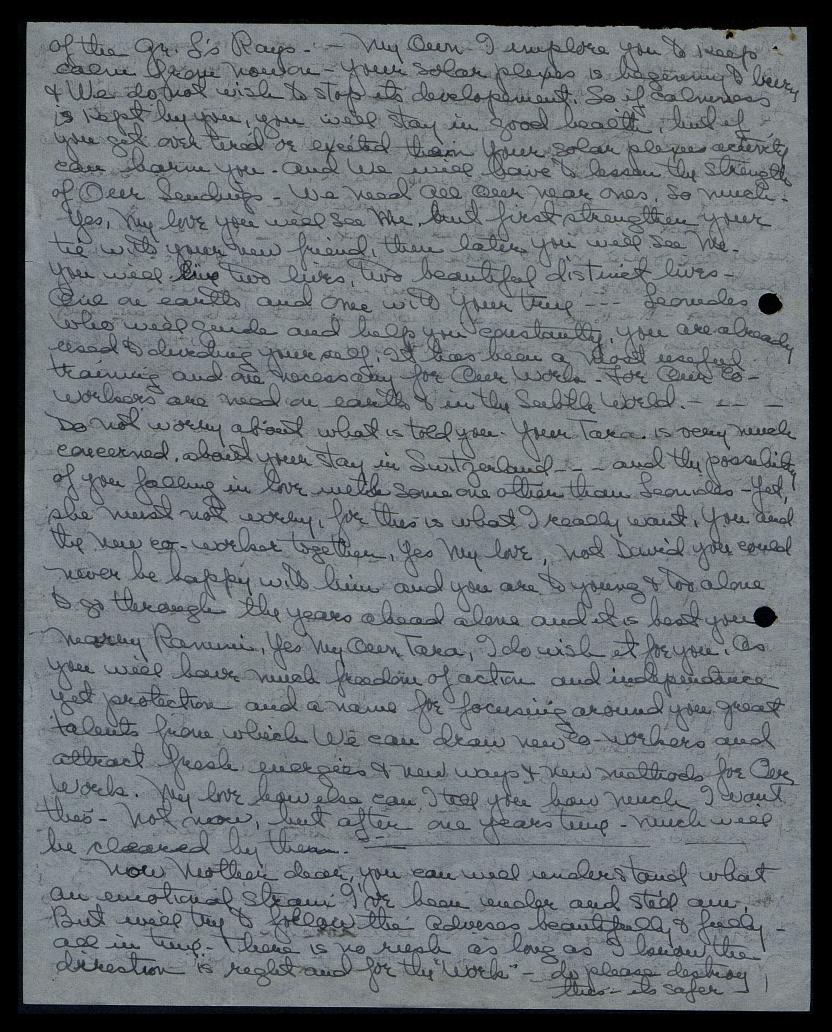 of the Gr. L's Rays. - My Own I implore you to keep
calm from now on - your solar plexus is begening to
& We do not wish to stop its development. So if calmness
is kept by you, you will stay in good health, but if
you get over tired or exjited then your solar plexus activity
can harm you - and We will have to lessen the strength
of Our Sendings - We need all Our near ones, so much -
Yes, My love you will see Me, but first strengthen your
tie with your new friend, then later you will see Me -
you will live two lives, two beautiful distinct lives -
One on earth and one with your true --- Leonides
who will guide and help you constantly, you are already
used to dividing your self, It has been a most useful
training and one necessary for Our Work - For Our Co-
Workers are need on earth & in the Subtle World. - - - -
Do not worry about what is told you. Your Tara is very much
concerned, about your stay in Switzerland - - - and the possibility
of you falling in love with some one other than Leonides - Yet,
she must not worry, for this is what I really want, you and
the new co-worker together, Yes My love, not David you could
never be happy with him and you are to young & too alone
to go through the years ahead alone and it is best you
marry Rammi, Yes My Own Tara, I do wish it for you. As
you will have much freedom of action and independence
yet protection and a name for focusing around you great
talents from which We can draw new co-workers and
attract fresh energies & new ways & new methods for Our
Work. My love how else can I tell you how much I want
this - not now, but after one years time - much will
be cleared by then.
Now Mother dear, you can well understand what
an emotional strain I've been under and still am,
But will try to follow the advises beautifully & fully -
all in time - There is no rush as long as I know the
direction is right and for the "Work" - do please destroy
this - its safer